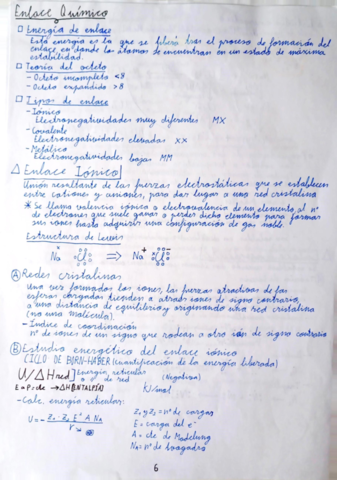 Enlace Químico
□ Energía de enlace
Esta energía es la que se liberó tras el proceso de formación del
enlace en donde los átomos se encuentran en un estado de máxima
estabilidad.
□ Teoría del octeto
- Octeto incompleto <8
- Octeto expandido >8
□ Tipos de enlace
- Iónico
Electronegatividades muy diferentes MX
- Covalente
Electronegatividades elevadas XX
- Metálico
Electronegatividades bajas MM
△ Enlace Iónico
Unión resultante de las fuerzas electrostáticas que se establecen
entre cationes y aniones, para dar lugar a una red cristalina
* Se llama valencia iónica o electrovalencia de un elemento al nº
de electrones que suele ganar o perder dicho elemento para formar
sus iones hasta adquirir una configuración de gas noble
Estructura de Lewis
Na Cl ⇒ Na+ Cl
Ⓐ Redes cristalinas
Una vez formados los iones, las fuerzas atractivas de las
esferas cargadas tienden a atraer iones de signo contrario,
a una distancia de equilibrio y originando una red cristalina
(no una molécula).
- Indice de coordinación
nº de iones de un signo que rodean a otro ion de signo contrario
Ⓑ Estudio energético del enlace iónico
CICLO DE BORN-HABER (cuantificación de la energía liberada)
U/△Hred] Energía reticular (Negativa)
de red
E a P = cte → △H(ENTALPÍA) KJ/mol
- Calc. energía reticular:
U = -
Z₁ y Z₂ = nº de cargas
E = carga del e⁻
A = cte de Madelung
NA = nº de Avogadro
6